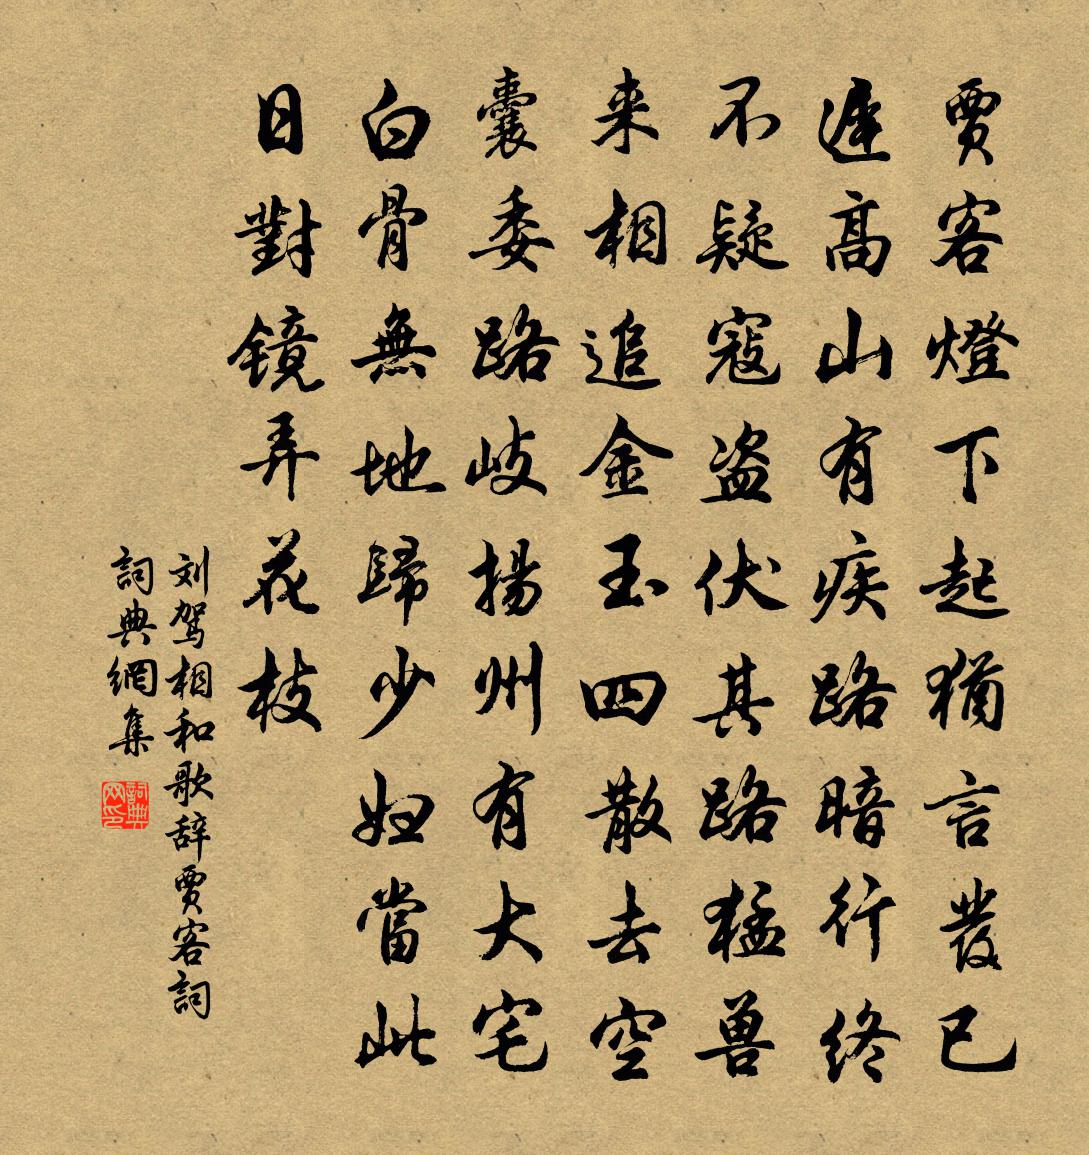 賈客燈下起猶言發已
遲高山有疾路暗行終
不疑寇盗伏其路猛兽
来相追金玉四散去空
囊委路岐揚州有大宅
白骨無地歸少妇當此
日對镜弄花枝
刘驾相和歌辞贾客詞
詞典網集
詞典网印